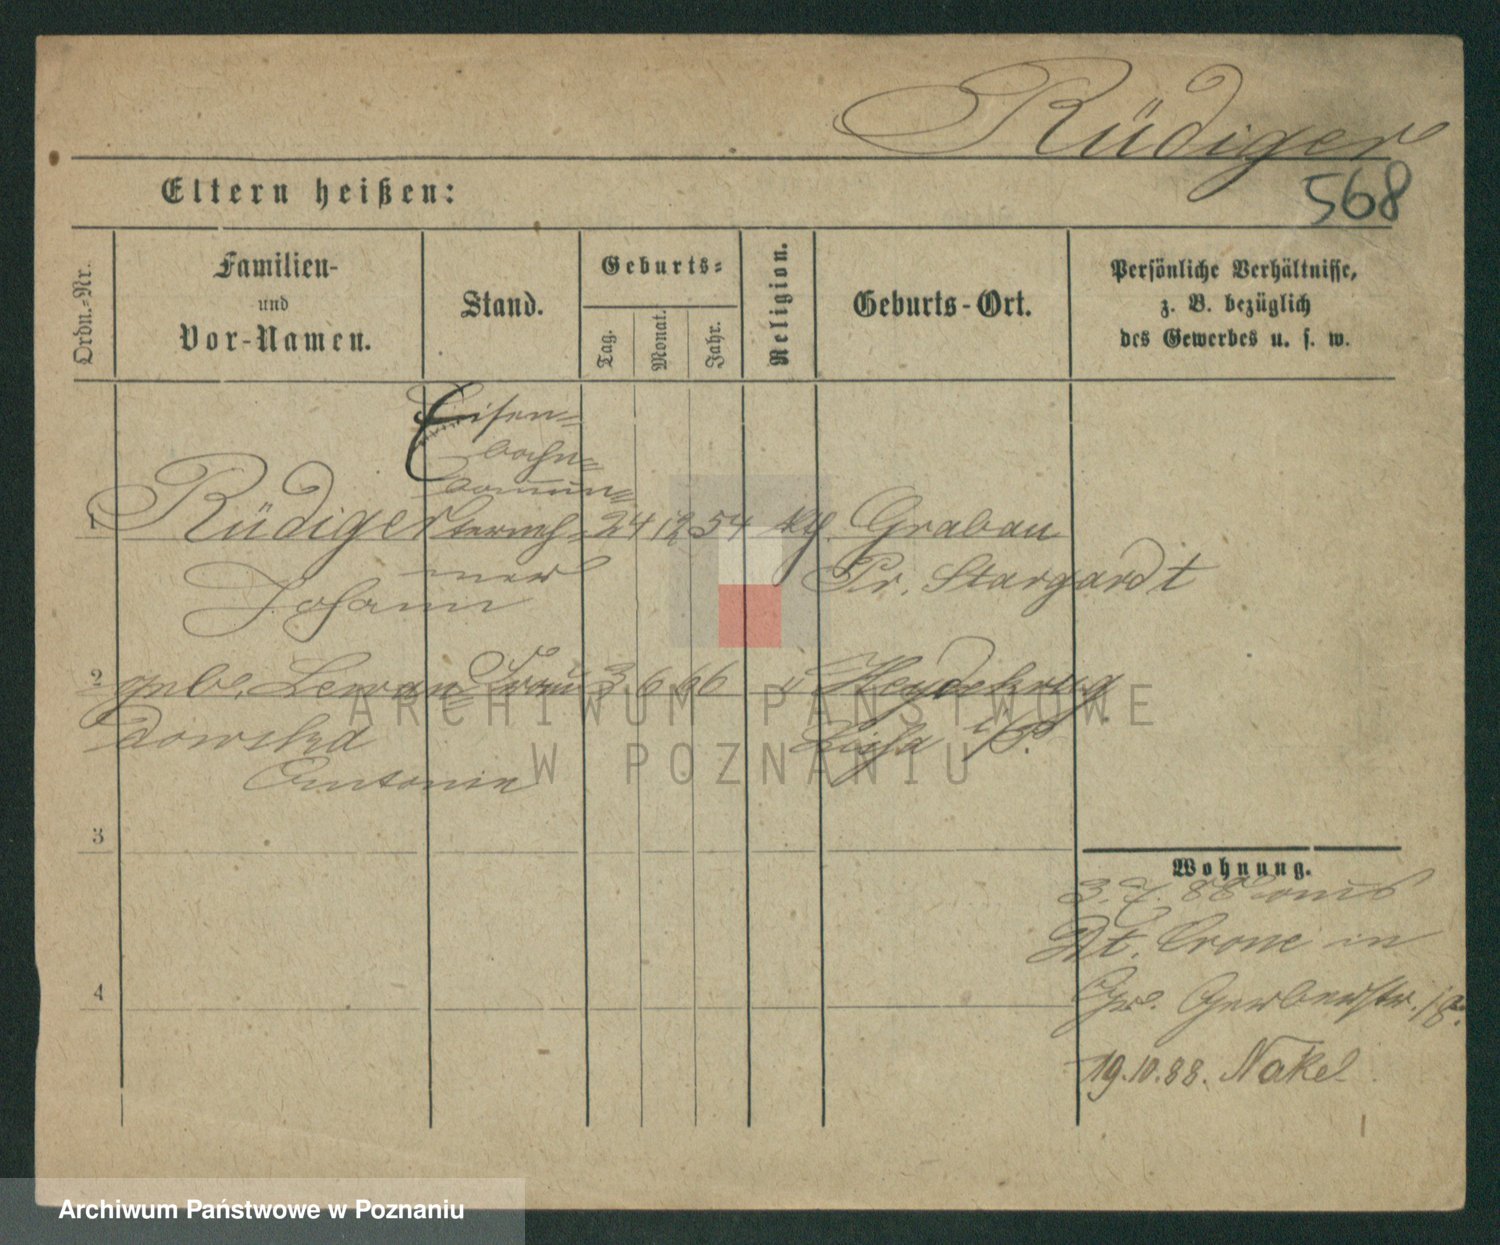 Rüdiger
568
Eltern heißen:
Ordn.-Nr.
Familien-
und
Vor-Namen.
Stand.
Geburts-
Tag.
Monat.
Jahr.
Religion.
Geburts-Ort.
Persönliche Verhältnisse,
z. B. bezüglich
des Gewerbes u. s. w.
Eisen-
bahn-
1 Rüdiger 24 12 54 kth. Grabau
Johann Pr. Stargardt
2 geb. Lewan- Frau 3 6 66 " Heydekrug
dowska
Antonie
3
4
ARCHIWUM PAŃSTWOWE
W POZNANIU
Wohnung.
3.7.88 aus
Dt. Crone in
Gr. Gerberstr. 18.
19.10.88. Nakel
Archiwum Państwowe w Poznaniu